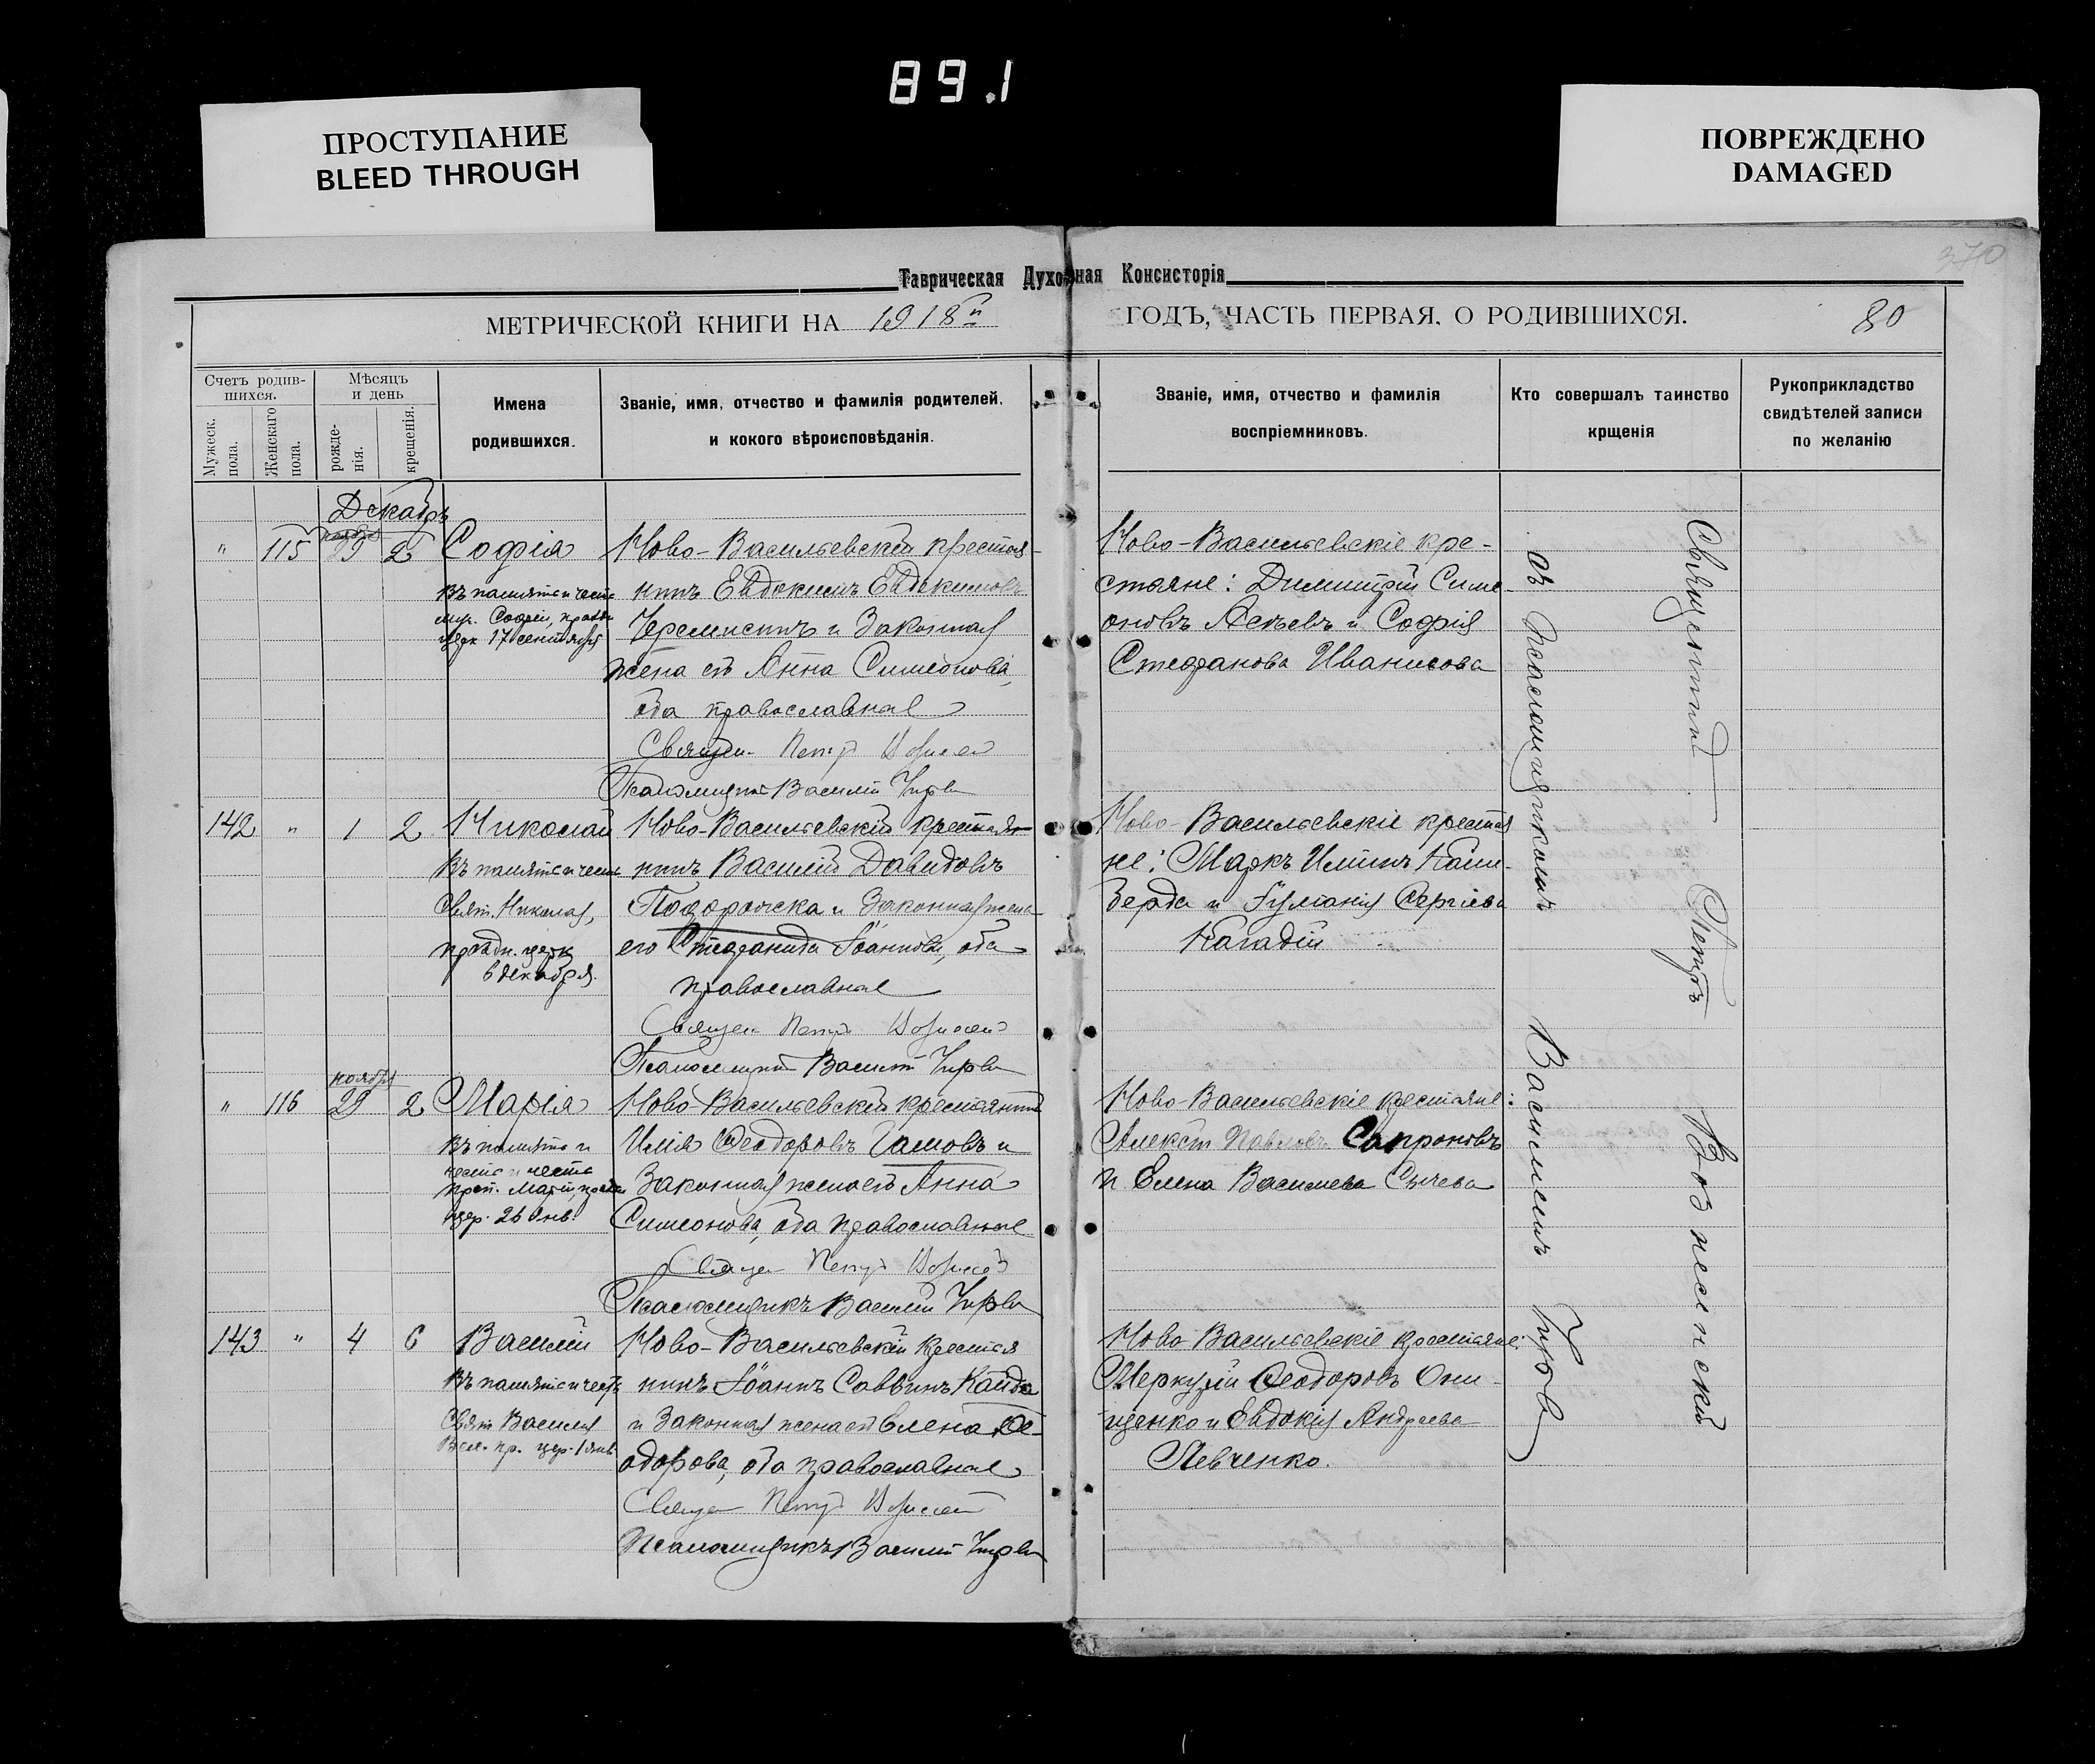 89.1
ПРОСТУПАНИЕ
BLEED THROUGH
ПОВРЕЖДЕНО
DAMAGED
370
Таврическая Духовная Консисторія
МЕТРИЧЕСКОЙ КНИГИ НА 1918й ГОДЪ, ЧАСТЬ ПЕРВАЯ, О РОДИВШИХСЯ. 80
Счетъ родив-
шихся.
Мужеск.
пола.
Женскаго
пола.
Мѣсяцъ
и день
рожде-
нія.
крещенія.
Имена
родившихся.
Званіе, имя, отчество и фамилія родителей,
и кокого вѣроисповѣданія.
Званіе, имя, отчество и фамилія
воспріемниковъ.
Кто совершалъ таинство
крщенія
Рукоприкладство
свидѣтелей записи
по желанію
Декабрь
ноября
" 115 29 2 Софія
Въ память и честь
муч. Софіи, праздн.
церк 17 сентября
Ново-Васильевскій крестья-
нинъ Евдокимъ Евдокимовъ
Черемисинъ и законная
жена его Анна Симеонова,
оба православные
Священ. Петръ
Псаломщикъ Василій Чирва
Ново-Васильевскіе кре-
стьяне: Димитрій Симе-
оновъ и Софія
Стефанова Иванисова
142 " 1 2 Николай
Въ память и честь
Свят. Николая,
праздн. церк
6 декабря.
Ново-Васильевскій крестья-
нинъ Василій Давидовъ
и законная жена
его Стефанида Іоаннова, оба
православные
Священ Петръ
Псаломщикъ Василій Чирва
Ново-Васильевскіе крестья
не: Маркъ Иліинъ Каши-
берда и Іуліанія Сергіева
Кагадій
ноября
" 116 29 2 Марія
Въ память и
честь и честь
преп. Маріи, праздн
цер. 26 янв.
Ново-Васильевскій крестьянинъ
Илія Феодоровъ Гамовъ и
законная жена его Анна
Симеонова, оба православные
Священ Петръ
Псаломщикъ Василій Чирва
Ново-Васильевскіе крестьяне:
Алексѣй Павловъ Сапроновъ
и Елена Васильева Сычева
143 " 4 6 Василій
Въ память и честь
Свят Василія
Вел. пр. цер. 1 янв.
Ново-Васильевскій крестья
нинъ Іоаннъ Саввинъ Кайда
и законная жена его Елена Фе-
одорова, оба православные
Священ Петръ
Псаломщикъ Василій Чирва
Ново-Васильевскіе крестьяне:
Меркурій Феодоровъ Они-
щенко и Евдокія Андреева
Левченко.
Священникъ Петръ Вознесенскій
съ псаломщикомъ Василіемъ Чирва